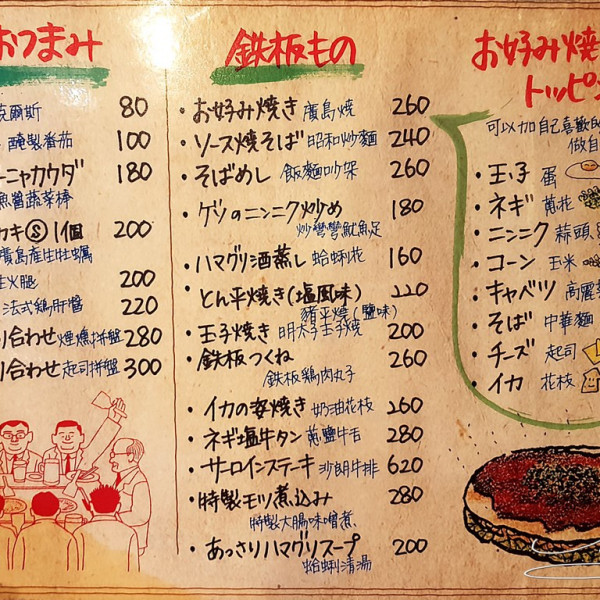 おつまみ
克爾斯 80
醃製番茄 100
ーニャカウダ 180
魚醬蔬菜棒
カキⓈ1個 200
廣島産生牡蠣
生火腿 200
法式鶏肝醬 220
り合わせ 煙燻拼盤 280
り合わせ 起司拼盤 300
鉄板もの
・お好み焼き 廣島燒 260
・ソース焼そば 昭和炒麵 240
・そばめし 飯麵吵架 260
・ゲソのニンニク炒め 180
炒彎彎魷魚足
・ハマグリ酒蒸し 蛤蜊花 160
・とん平焼き(塩風味) 220
豬平燒(鹽味)
・玉子焼き 明太子玉子燒 200
・鉄板つくね 260
鉄板鶏肉丸子
・イカの姿焼き 奶油花枝 260
・ネギ塩牛タン 蔥鹽牛舌 280
・サーロインステーキ 沙朗牛排 620
・特製モツ煮込み 280
特製大腸味噌煮
・あっさりハマグリスープ 200
蛤蜊清湯
お好み焼
トッピン
可以加自己喜歡的
做自
・玉子 蛋
・ネギ 蔥花
・ニンニク 蒜頭
・コーン 玉米
・キャベツ 高麗
・そば 中華麵
・チーズ 起司
・イカ 花枝